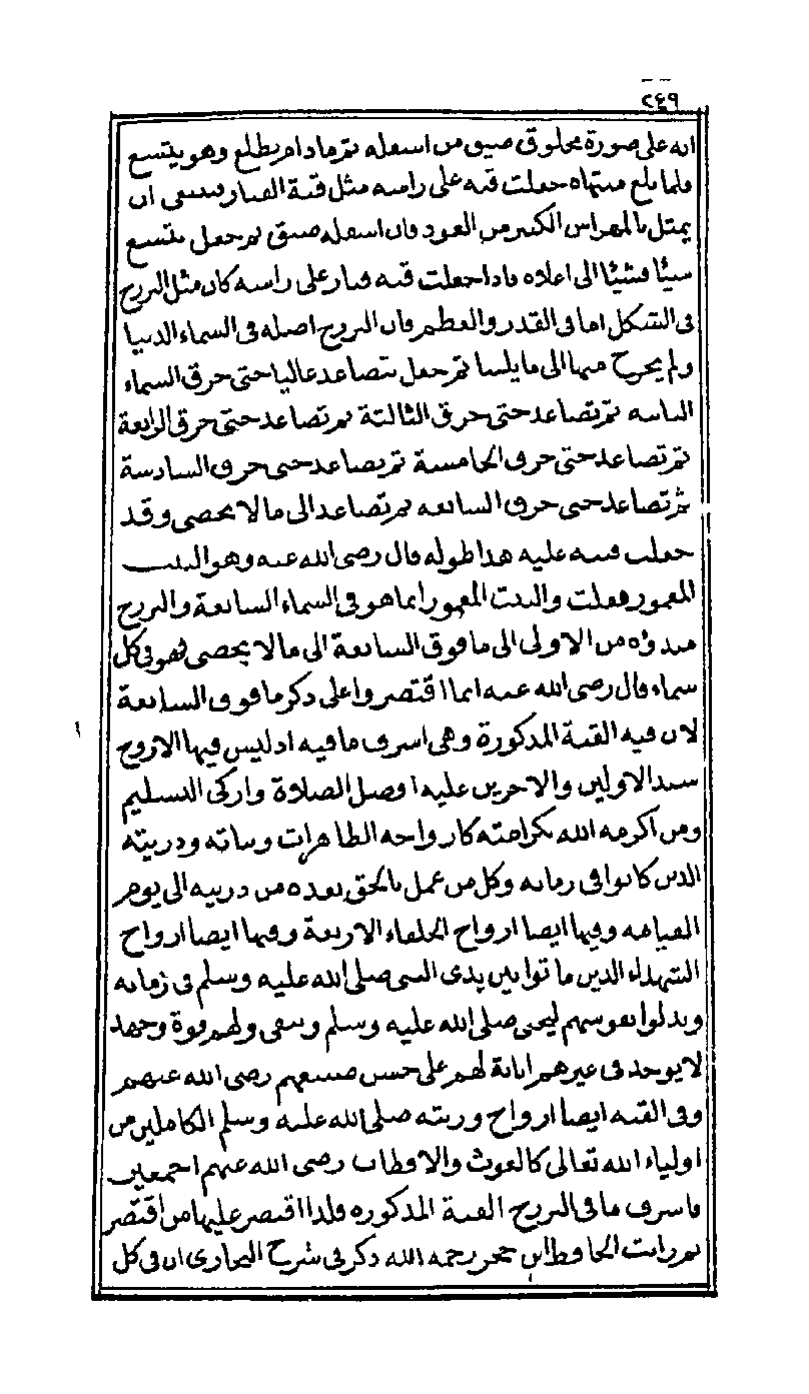 ٢٤٩
انه على صورة مخلوق ضيق من اسفله ثم مادام يطلع وهو يتسع
فلما بلغ منتهاه جعلت قبة على راسه مثل قبة الفنار فينبغي ان
يمثل بالمهراس الكبير من العود فان اسفله ضيق ثم جعل يتسع
شيئا فشيئا الى اعلاه فاذا جعلت قبة فنار على راسه كان مثل البرزخ
في الشكل اما في القدر والعظم فان البرزخ اصله في السماء الدنيا
ولم يخرج منها الى ما يلينا ثم جعل يتصاعد عاليا حتى خرق السماء
الثانية ثم تصاعد حتى خرق الثالثة ثم تصاعد حتى خرق الرابعة
ثم تصاعد حتى خرق الخامسة ثم تصاعد حتى خرق السادسة
ثم تصاعد حتى خرق السابعة ثم تصاعد الى ما لا يحصى وقد
جعلت قبته عليه هذا طوله قال رضى الله عنه وهو البيت
المعمور فقلت والبيت المعمور انما هو في السماء السابعة والبرزخ
مبدؤه من الاولى الى ما فوق السابعة الى ما لا يحصى فهو في كل
سماء قال رضى الله عنه انما اقتصروا على ذكر ما فوق السابعة
لان فيه القبة المذكورة وهي اشرف ما فيه اذ ليس فيها الا روح
سيد الاولين والاخرين عليه افضل الصلاة وازكى التسليم
ومن اكرمه الله بكرامته كازواجه الطاهرات وبناته وذريته
الذين كانوا في زمانه وكل من عمل بالحق بعده من ذريته الى يوم
القيامة وفيها ايضا ارواح الخلفاء الاربعة وفيها ايضا ارواح
الشهداء الذين ماتوا بين يدى النبي صلى الله عليه وسلم في زمانه
وبذلوا نفوسهم ليحيى صلى الله عليه وسلم ويبقى ولهم قوة وجهد
لا يوجد في غيرهم اثابة لهم على حسن صنيعهم رضى الله عنهم
وفي القبة ايضا ارواح ورثته صلى الله عليه وسلم الكاملين من
اولياء الله تعالى كالغوث والاقطاب رضى الله عنهم اجمعين
فاشرف ما في البرزخ القبة المذكورة فلذا اقتصر عليها من اقتصر
ثم رايت الحافظ ابن حجر رحمه الله ذكر في شرح البخارى ان في كل